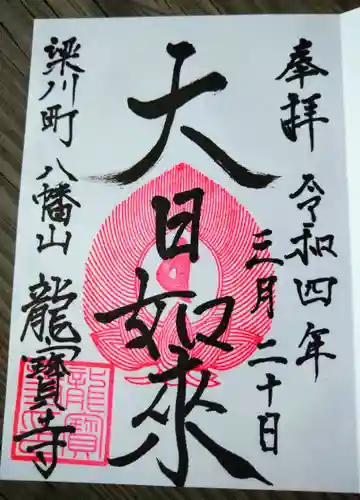 奉拝
令和四年
三月二十日
大日如来
梁川町 八幡山 龍寶寺
龍寶